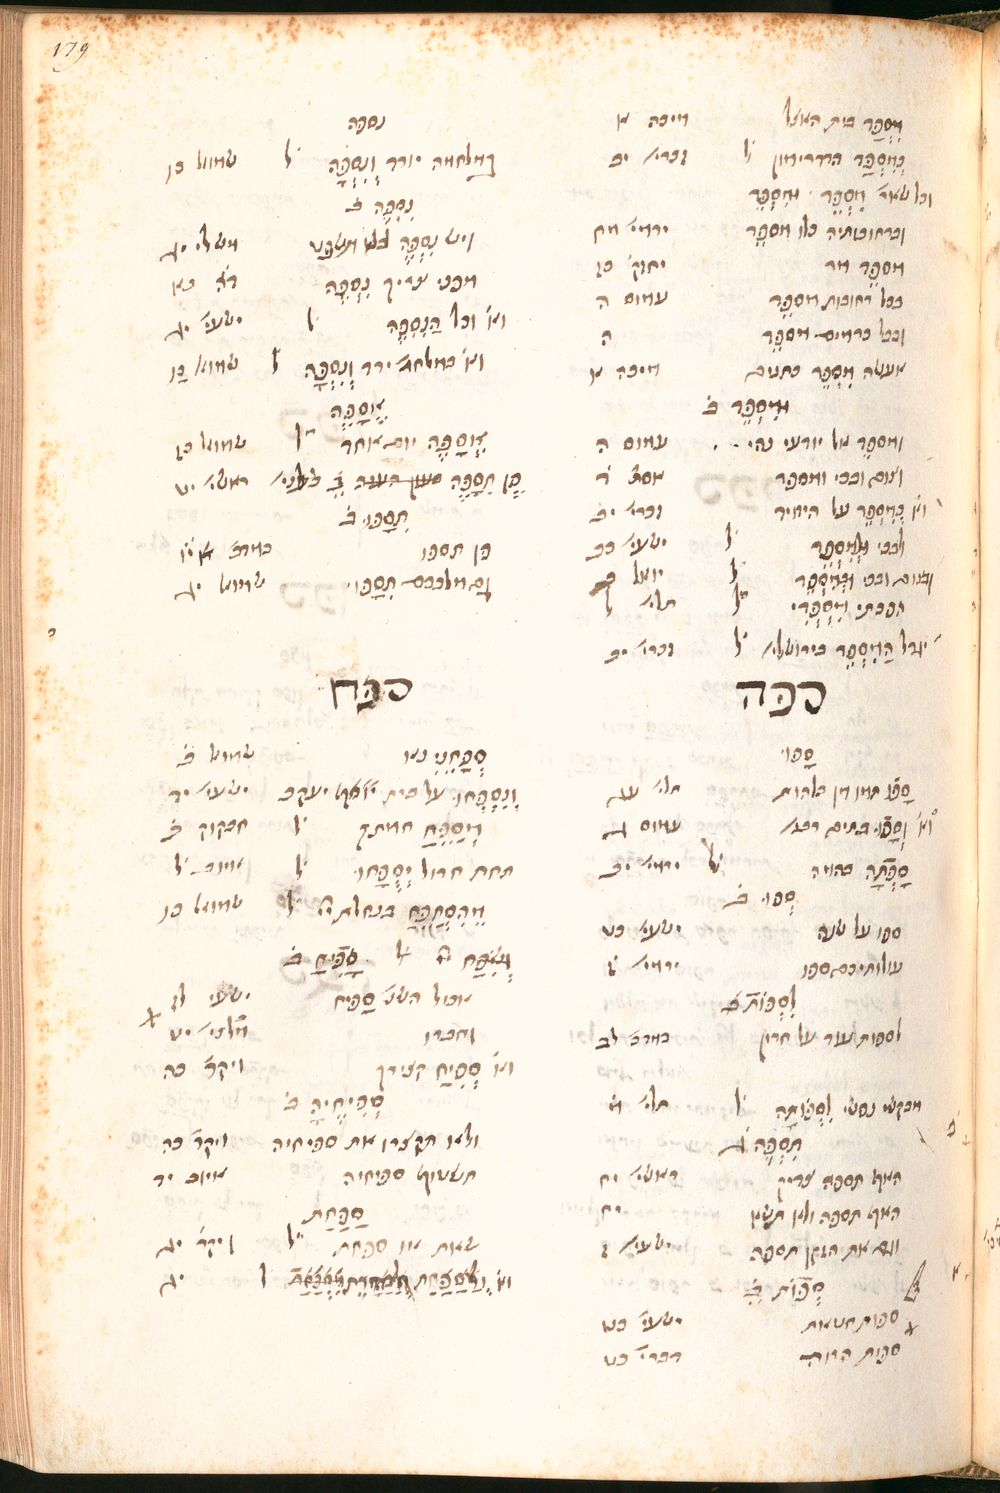 179
מִסְפַּד בית האצל מיכה א
כְּמִסְפַּד הדדרימון ל זכרי׳ יב
וכל שאר מִסְפֵּד . מִסְפֵּד
וברחובותיה כלו מספד ירמי׳ מח
מספד מר יחזק׳ כז
בכל רחובות מספד עמוס ה
ובכל כרמים מספד ה
אעשה מִסְפֵּד כתנים מיכה א
וּמִסְפֵּד ב
ומספד אל יודעי נהי עמוס ה
וצום ובכי ומספד אסת׳ ד
וא׳ כְּמִסְפֵּד על היחיד זכרי׳ יב
לבכי וּלְמִסְפֵּד ל ישעי׳ כב
ובצום ובכי וּבְמִסְפֵּד ל יואל ב
הפכתי מִסְפְּדִי ל תלי׳ ל
יגדל הַמִּסְפֵּד בירושלי׳ ל זכרי׳ יב
ספה
סָפוּ
סָפוּ תמו מן בלהות תלי׳ עג
וא׳ וְסָפוּ בתים רבי׳ עמוס ג
סָפְתָה בהמה ל ירמי׳ יב
סְפוּ ב
ספו על שנה ישעי׳ כט
עולותיכם ספו ירמי׳ ז
לִסְפּוֹת ב
לספות עוד על חרון במדב׳ לב
מבקשי נפשי לִסְפּוֹתָהּ ל תלי׳ מ
תִסְפֶּה ג
האף תספה צדיק ראשי׳ יח
האף תספה ולא תשא יח
וגם את הזקן תספה ישעי׳ ז
סְפוֹת ב
ספות חטאת ישעי׳ כט
ספות הרוה דברי׳ כט
נספה
במלחמה יורד וְנִסְפָּה ל שמואל כו
נִסְפֶּה ב
ויש נִסְפֶּה בלא משפט משלי יג
מפני צריך נִסְפֶּה דה׳ כא
וא׳ וכל הַנִּסְפֶּה ל ישעי׳ יג
וא׳ במלחמ׳ ירד וְנִסְפָּה ל שמואל כו
אֶסָּפֶה
אֶסָּפֶה יום אחד ל שמואל כז
פֶּן תִּסָּפֶה ב ראשי׳ יט
תִסָּפוּ ב
פן תספו במדב׳ יו
גם מלככם תִסָּפוּ שמואל יב
ספח
סְפָחֵנִי נא שמואל ב
וְנִסְפְּחוּ על בית יעקב ישעי׳ יד
מְסַפֵּחַ חמתך ל חבקוק ב
תחת חרול יְסֻפָּחוּ ל איוב ל
מֵהִסְתַּפֵּחַ בנחלת ה׳ ל שמואל כו
וְשִׂפַּח ה׳ ל . סָפִיחַ ב
אכול השנ׳ סָפִיחַ ישעי׳ לז
וחברו מלכי׳ יט
וא׳ סְפִיחַ קצירך ויקר׳ כה
סְפִיחֶיהָ ב
ולא תקצרו את ספיחיה ויקר׳ כה
תשטוף ספיחיה איוב יד
סַפַּחַת
שאת או ספחת ל ויקר׳ יג